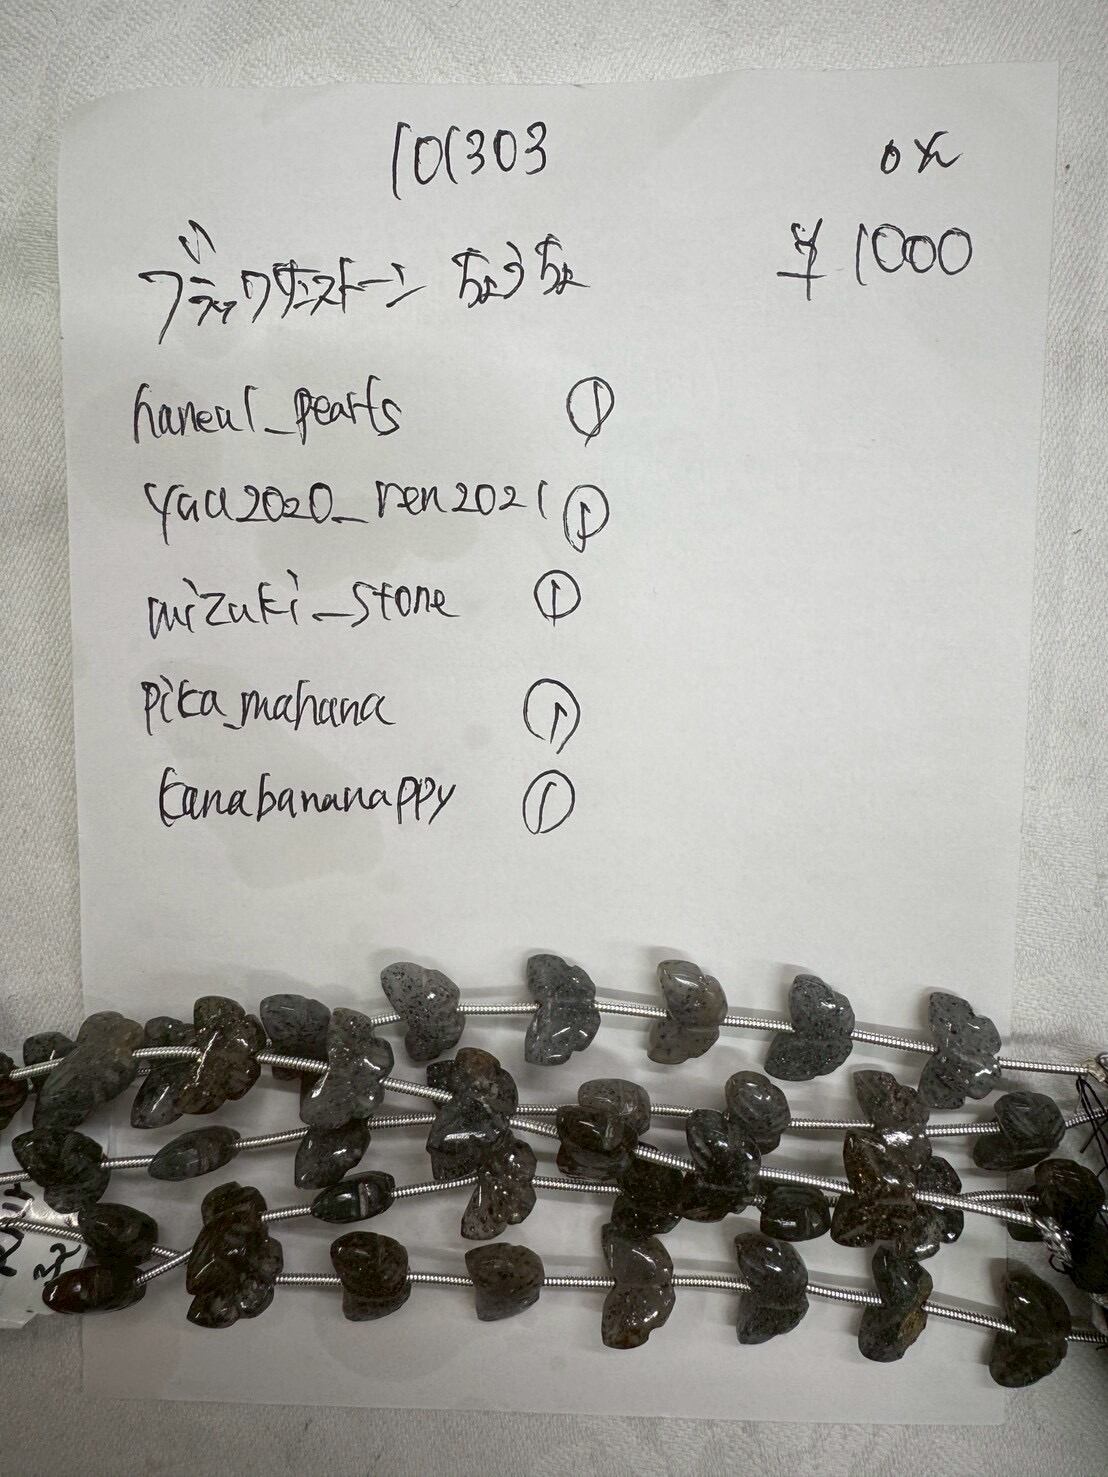 101303
¥1000
ブラックサンストーン ちょうちょ
haneul_pearls ①
yau2020_ren2021 ①
mizuki_stone ①
pika_mahana ①
kanabananappy ①